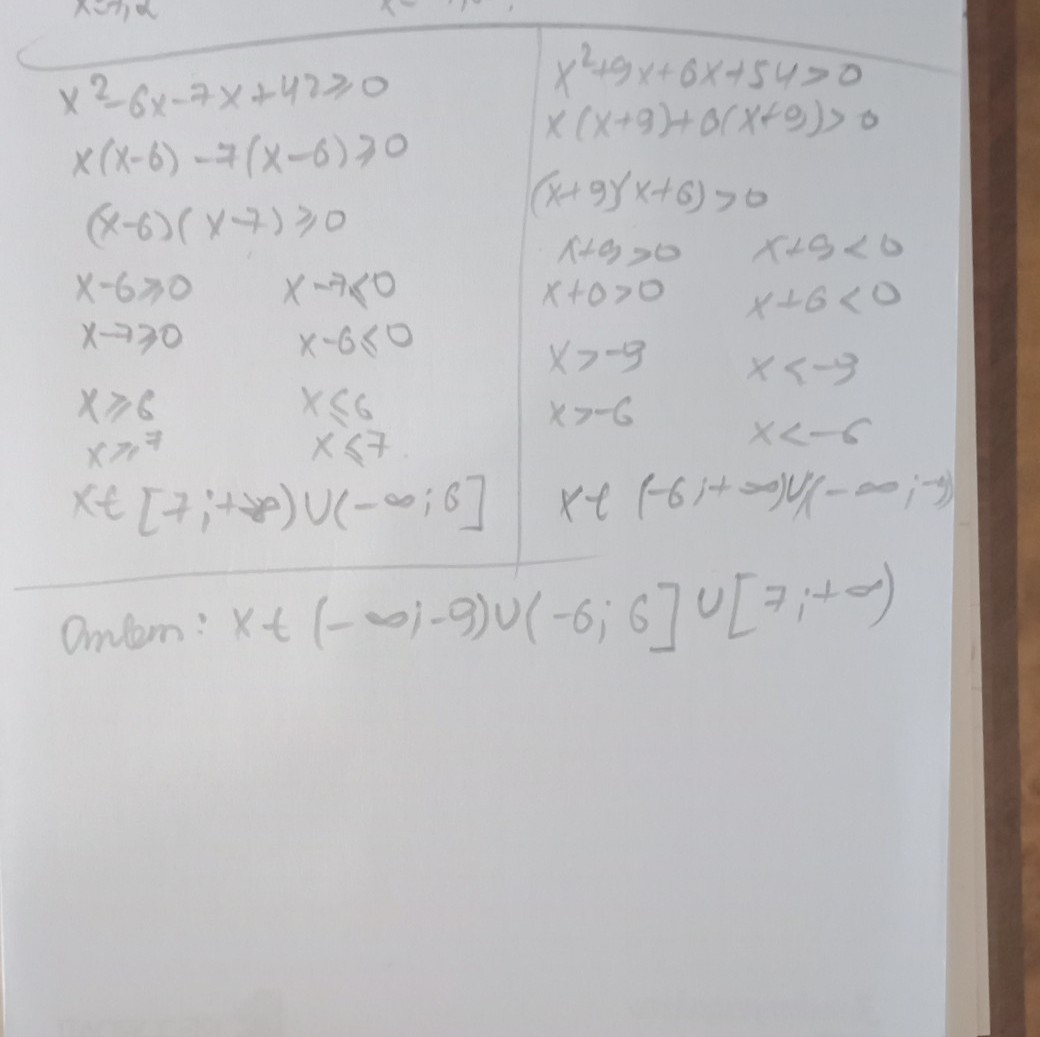 x²-6x-7x+42≥0
x(x-6)-7(x-6)≥0
(x-6)(x-7)≥0
x-6≥0 x-7≤0
x-7≥0 x-6≤0
x≥6 x≤6
x≥7 x≤7
x∈[7;+∞)∪(-∞;6]
x²+9x+6x+54>0
x(x+9)+6(x+9)>0
(x+9)(x+6)>0
x+9>0 x+9<0
x+6>0 x+6<0
x>-9 x<-9
x>-6 x<-6
x∈(-6;+∞)∪(-∞;-9)
Ответ: x∈(-∞;-9)∪(-6;6]∪[7;+∞)